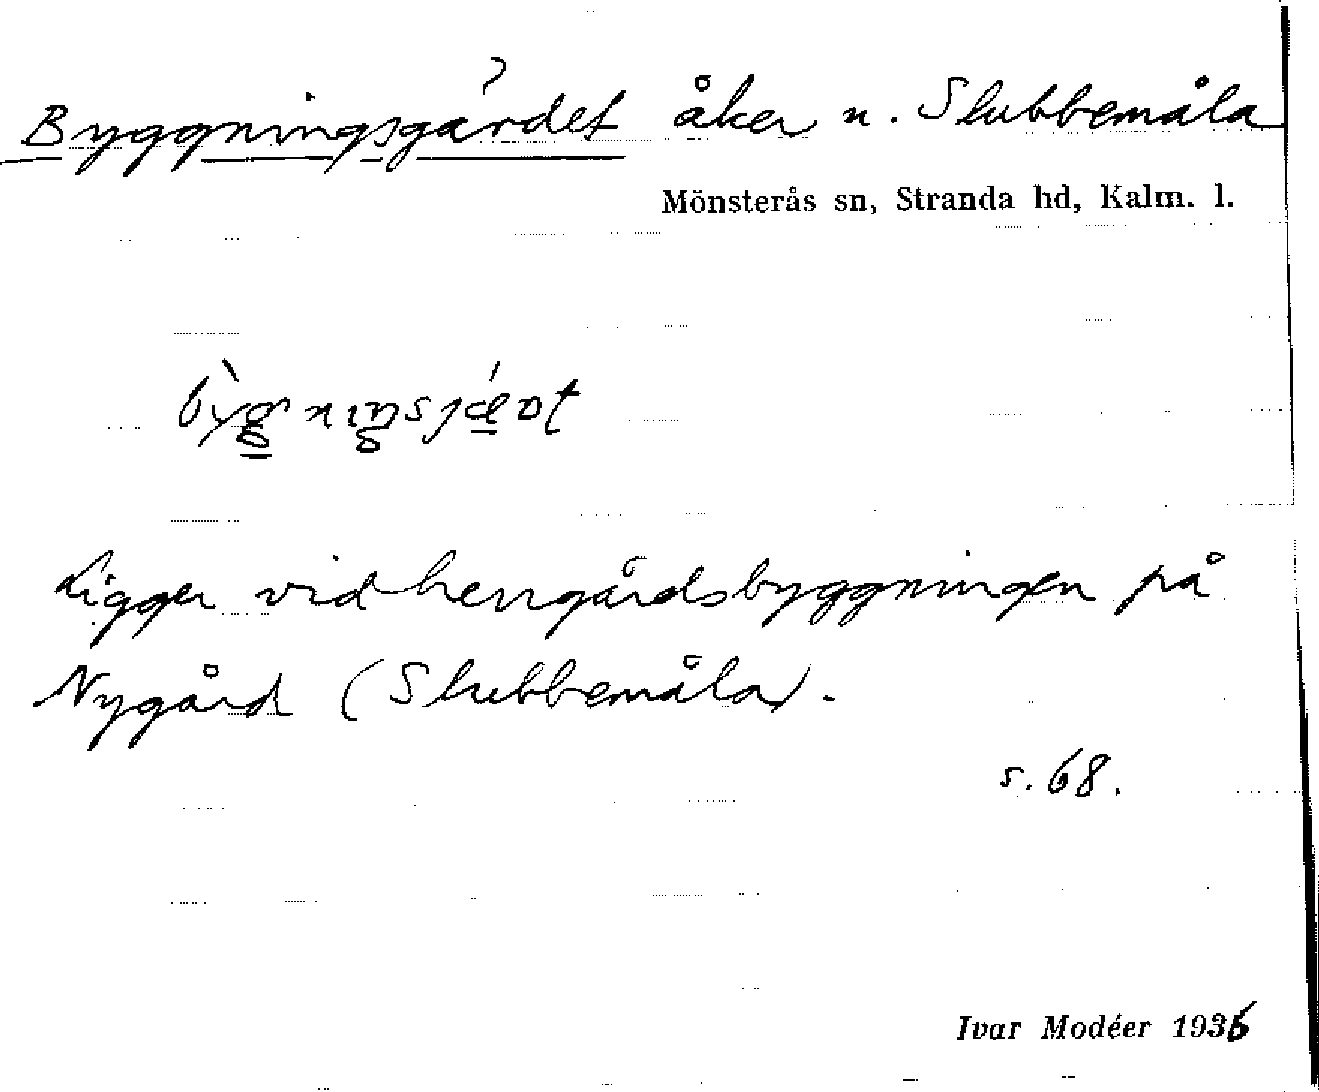 Byggningsgärdet åker u. Slubbemåla
Mönsterås sn, Stranda hd, Kalm. l.
Ligger vid herrgårdsbyggningen på
Nygård (Slubbemåla).
s. 68.
Ivar Modéer 1936